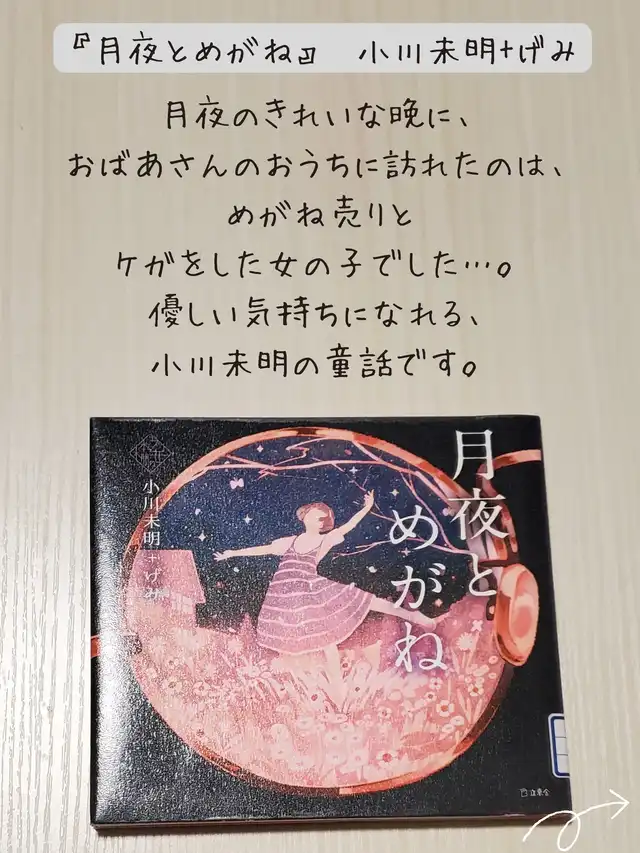 『月夜とめがね』 小川未明+げみ
月夜のきれいな晩に、
おばあさんのおうちに訪れたのは、
めがね売りと
ケガをした女の子でした…。
優しい気持ちになれる、
小川未明の童話です。
月夜と
めがね
小川未明+げみ
立東舎